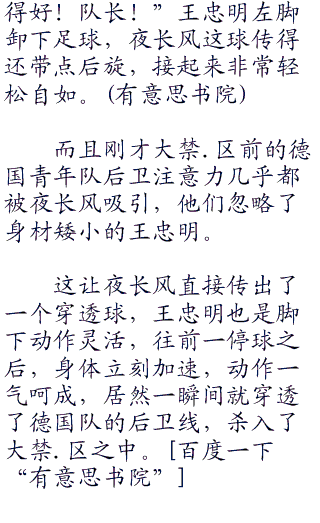 得好！队长！”王忠明左脚
卸下足球，夜长风这球传得
还带点后旋，接起来非常轻
松自如。(有意思书院)
而且刚才大禁.区前的德
国青年队后卫注意力几乎都
被夜长风吸引，他们忽略了
身材矮小的王忠明。
这让夜长风直接传出了
一个穿透球，王忠明也是脚
下动作灵活，往前一停球之
后，身体立刻加速，动作一
气呵成，居然一瞬间就穿透
了德国队的后卫线，杀入了
大禁.区之中。[百度一下
“有意思书院”]